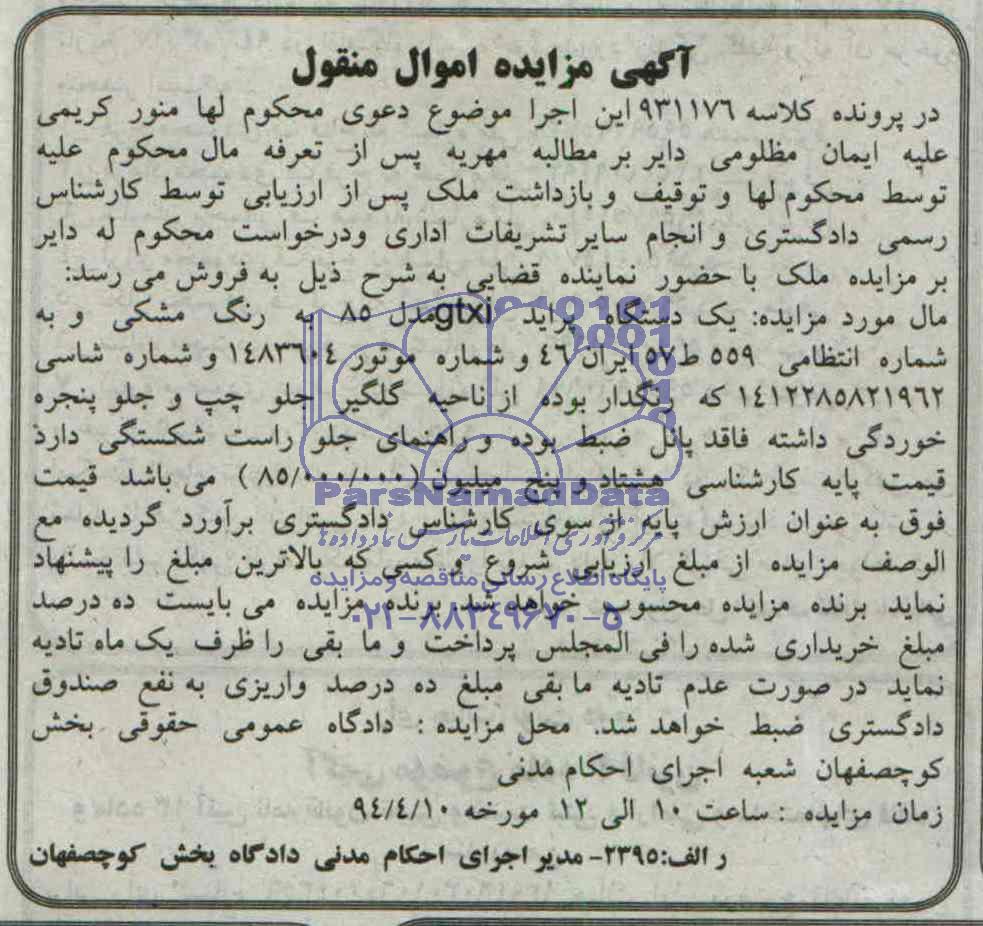 آگهی مزایده اموال منقول
در پرونده کلاسه ۹۳۱۱۷۶ این اجرا موضوع دعوی محکوم لها منور کریمی
علیه ایمان مظلومی دایر بر مطالبه مهریه پس از تعرفه مال محکوم علیه
توسط محکوم لها و توقیف و بازداشت ملک پس از ارزیابی توسط کارشناس
رسمی دادگستری و انجام سایر تشریفات اداری ودرخواست محکوم له دایر
بر مزایده ملک با حضور نماینده قضایی به شرح ذیل به فروش می رسد:
مال مورد مزایده: یک دستگاه پراید gtxi مدل ۸۵ به رنگ مشکی و به
شماره انتظامی ۵۵۹ ط۵۷ ایران ۴۶ و شماره موتور ۱۴۸۳۶۰۴ و شماره شاسی
۱۴۱۲۲۸۵۸۲۱۹۶۲ که رنگدار بوده از ناحیه گلگیر جلو چپ و جلو پنجره
خوردگی داشته فاقد پانل ضبط بوده و راهنمای جلو راست شکستگی دارد
قیمت پایه کارشناسی هشتاد و پنج میلیون (۸۵/۰۰۰/۰۰۰) می باشد قیمت
فوق به عنوان ارزش پایه از سوی کارشناس دادگستری برآورد گردیده مع
الوصف مزایده از مبلغ ارزیابی شروع و کسی که بالاترین مبلغ را پیشنهاد
نماید برنده مزایده محسوب خواهد شد. برنده مزایده می بایست ده درصد
مبلغ خریداری شده را فی المجلس پرداخت و ما بقی را ظرف یک ماه تادیه
نماید در صورت عدم تادیه ما بقی مبلغ ده درصد واریزی به نفع صندوق
دادگستری ضبط خواهد شد. محل مزایده : دادگاه عمومی حقوقی بخش
کوچصفهان شعبه اجرای احکام مدنی
زمان مزایده : ساعت ۱۰ الی ۱۲ مورخه ۹۴/۴/۱۰
ر الف:۲۳۹۵- مدیر اجرای احکام مدنی دادگاه بخش کوچصفهان
ParsNamadData
مرکز فرآوری اطلاعات پارس نماد داده ها
پایگاه اطلاع رسانی مناقصه و مزایده
۰۲۱-۸۸۳۴۹۶۷۰-۵